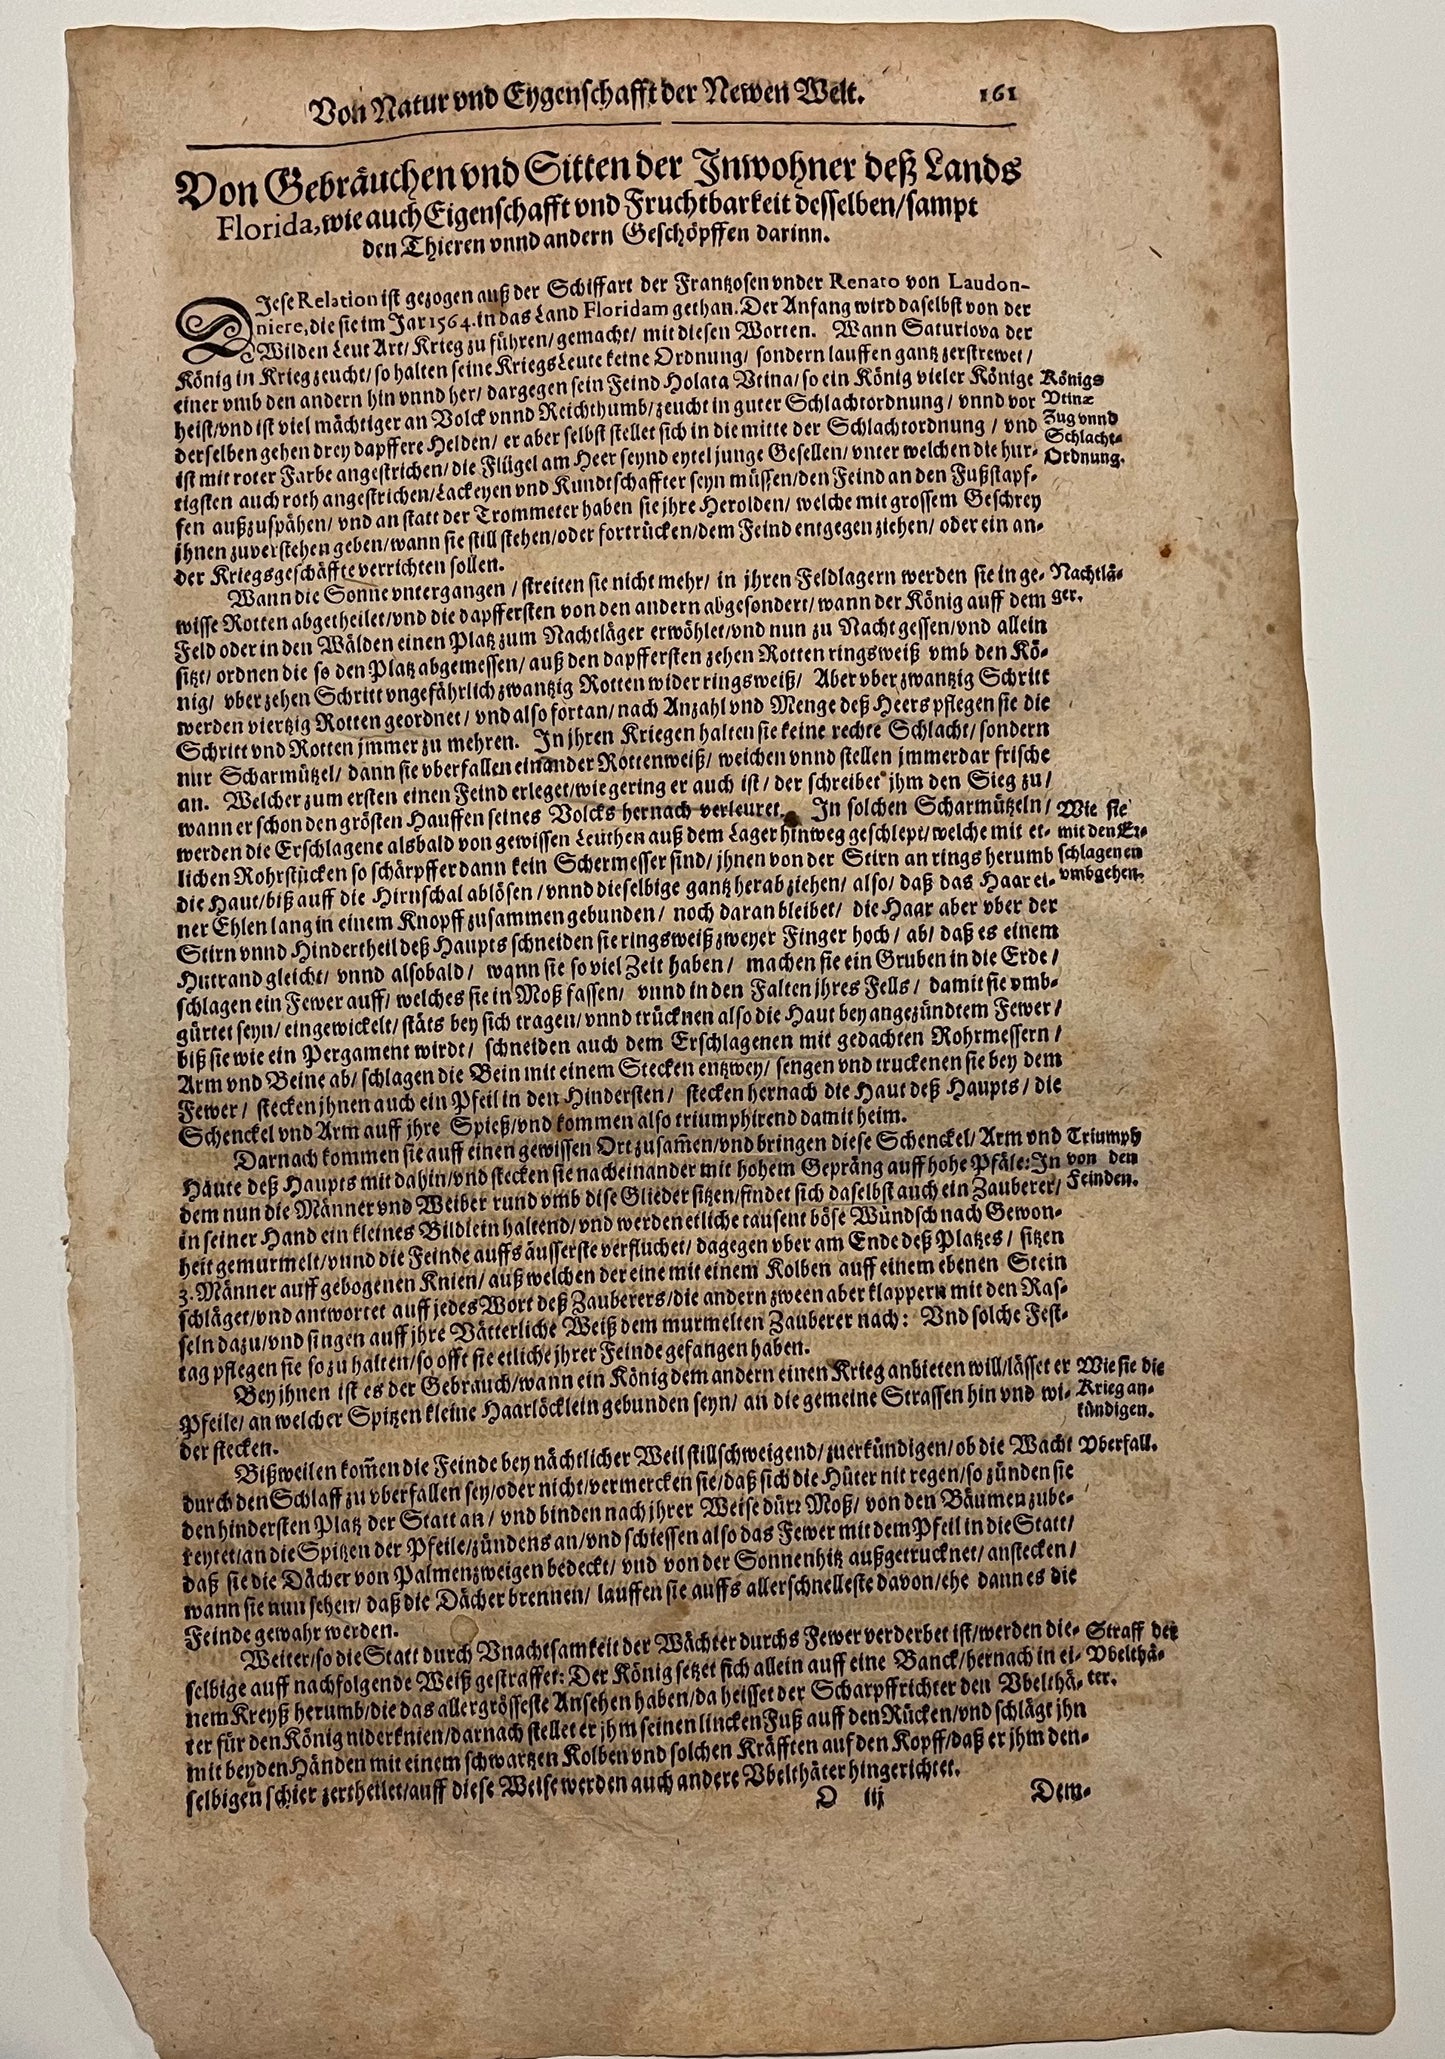 Von Natur vnd Eygenschafft der Newen Welt. 161
Von Gebräuchen vnd Sitten der Inwohner deß Lands
Florida, wie auch Eigenschafft vnd Fruchtbarkeit desselben/ sampt
den Thieren vnnd andern Geschöpffen darinn.
DJese Relation ist gezogen auß der Schiffart der Frantzosen vnder Renato von Laudon-
niere, die sie im Jar 1564. in das Land Floridam gethan. Der Anfang wird daselbst von der
Wilden Leut Art/ Krieg zu führen/ gemacht/ mit diesen Worten. Wann Saturiova der
König in Krieg zeucht/ so halten seine KriegsLeute keine Ordnung/ sondern lauffen gantz zerstrewet/
einer vmb den andern hin vnnd her/ dargegen sein Feind Holata Vtina/ so ein König vieler Könige
heist/ vnd ist viel mächtiger an Volck vnnd Reichthumb/ zeucht in guter Schlachtordnung/ vnnd vor
derselben gehen drey dapffere Helden/ er aber selbst stellet sich in die mitte der Schlachtordnung/ vnd
ist mit roter Farbe angestrichen/ die Flügel am Heer seynd eytel junge Gesellen/ vnter welchen die hur-
tigsten auch roth angestrichen/ Lackeyen vnd Kundtschaffter seyn müssen/ den Feind an den Fußstapf-
fen außzuspähen/ vnd an statt der Trommeter haben sie jhre Herolden/ welche mit grossem Geschrey
jhnen zuverstehen geben/ wann sie still stehen/ oder fortrücken/ dem Feind entgegen ziehen/ oder ein an-
der Kriegsgeschäffte verrichten sollen.
Königs
Vtinæ
Zug vnnd
Schlacht-
Ordnung.
Wann die Sonne vntergangen/ streiten sie nicht mehr/ in jhren Feldlagern werden sie in ge-
wisse Rotten abgetheilet/ vnd die dapffersten von den andern abgesondert/ wann der König auff dem
Feld oder in den Wälden einen Platz zum Nachtläger erwöhlet/ vnd nun zu Nacht gessen/ vnd allein
sitzt/ ordnen die so den Platz abgemessen/ auß den dapffersten zehen Rotten ringsweiß vmb den Kö-
nig/ vber zehen Schritt vngefährlich zwantzig Rotten wider ringsweiß/ Aber vber zwantzig Schritt
werden viertzig Rotten geordnet/ vnd also fortan/ nach Anzahl vnd Menge deß Heers pflegen sie die
Schritt vnd Rotten jmmer zu mehren. In jhren Kriegen halten sie keine rechte Schlacht/ sondern
nur Scharmützel/ dann sie vberfallen einander Rottenweiß/ weichen vnnd stellen jmmerdar frische
an. Welcher zum ersten einen Feind erleget/ wie gering er auch ist/ der schreibet jhm den Sieg zu/
wann er schon den grösten Hauffen seines Volcks hernach verleuret. In solchen Scharmützeln/
werden die Erschlagene alsbald von gewissen Leuthen auß dem Lager hinweg geschlept/ welche mit et-
lichen Rohrstücken so schärpffer dann kein Schermesser sind/ jhnen von der Stirn an rings herumb
die Haut/ biß auff die Hirnschal ablösen/ vnnd dieselbige gantz herab ziehen/ also/ daß das Haar ei-
ner Ehlen lang in einem Knopff zusammen gebunden/ noch daran bleibet/ die Haar aber vber der
Stirn vnnd Hindertheil deß Haupts schneiden sie ringsweiß zweyer Finger hoch/ ab/ daß es einem
Hutrand gleicht/ vnnd alsobald/ wann sie so viel Zeit haben/ machen sie ein Gruben in die Erde/
schlagen ein Fewer auff/ welches sie in Moß fassen/ vnnd in den Falten jhres Fells/ damit sie vmb-
gürtet seyn/ eingewickelt/ stäts bey sich tragen/ vnnd trücknen also die Haut bey angezündtem Fewer/
biß sie wie ein Pergament wirdt/ schneiden auch dem Erschlagenen mit gedachten Rohrmessern/
Arm vnd Beine ab/ schlagen die Bein mit einem Stecken entzwey/ sengen vnd truckenen sie bey dem
Fewer/ stecken jhnen auch ein Pfeil in den Hindersten/ stecken hernach die Haut deß Haupts/ die
Schenckel vnd Arm auff jhre Spieß/ vnd kommen also triumphirend damit heim.
Nachtlä-
ger.
Wie sie
mit den Er-
schlagenen
vmbgehen.
Darnach kommen sie auff einen gewissen Ort zusam̃en/ vnd bringen diese Schenckel/ Arm vnd
Häute deß Haupts mit dahin/ vnd stecken sie nacheinander mit hohem Gepräng auff hohe Pfäle: In
dem nun die Männer vnd Weiber rund vmb dise Glieder sitzen/ findet sich daselbst auch ein Zauberer/
in seiner Hand ein kleines Bildlein haltend/ vnd werden etliche tausent böse Wündsch nach Gewon-
heit gemurmelt/ vnnd die Feinde auffs äusserste verfluchet/ dagegen vber am Ende deß Platzes/ sitzen
3. Männer auff gebogenen Knien/ auß welchen der eine mit einem Kolben auff einem ebenen Stein
schläget/ vnd antwortet auff jedes Wort deß Zauberers/ die andern zween aber klappern mit den Ras-
seln dazu/ vnd singen auff jhre Vätterliche Weiß dem murmelten Zauberer nach: Vnd solche Fest-
tag pflegen sie so zu halten/ so offt sie etliche jhrer Feinde gefangen haben.
Triumph
von den
Feinden.
Bey jhnen ist es der Gebrauch/ wann ein König dem andern einen Krieg anbieten will/ lässet er
Pfeile/ an welcher Spitzen kleine Haarlöcklein gebunden seyn/ an die gemeine Strassen hin vnd wi-
der stecken.
Wie sie die
Krieg an-
kündigen.
Bißweilen kom̃en die Feinde bey nächtlicher Weil stillschweigend/ zuerkündigen/ ob die Wacht
durch den Schlaff zu vberfallen sey/ oder nicht/ vermercken sie/ daß sich die Hüter nit regen/ so zünden sie
den hindersten Platz der Statt an/ vnd binden nach jhrer Weise dürr Moß/ von den Bäumen zube-
reytet/ an die Spitzen der Pfeile/ zündens an/ vnd schiessen also das Fewer mit dem Pfeil in die Statt/
daß sie die Dächer von Palmenzweigen bedeckt/ vnd von der Sonnenhitz außgetrucknet/ anstecken/
wann sie nun sehen/ daß die Dächer brennen/ lauffen sie auffs allerschnelleste davon/ ehe dann es die
Feinde gewahr werden.
Vberfall.
Weiter/ so die Statt durch Vnachtsamkeit der Wächter durchs Fewer verderbet ist/ werden die-
selbige auff nachfolgende Weiß gestraffet: Der König setzet sich allein auff eine Banck/ hernach in ei-
nem Kreyß herumb/ die das allergrösseste Ansehen haben/ da heisset der Scharpffrichter den Vbelthä-
ter für den König niderknien/ darnach stellet er jhm seinen lincken Fuß auff den Rücken/ vnd schlägt jhn
mit beyden Händen mit einem schwartzen Kolben vnd solchen Kräfften auf den Kopff/ daß er jhm den-
selbigen schier zertheilet/ auff diese Weise werden auch andere Vbelthäter hingerichtet.
Straff der
Vbelthä-
ter.
O iij Dem-